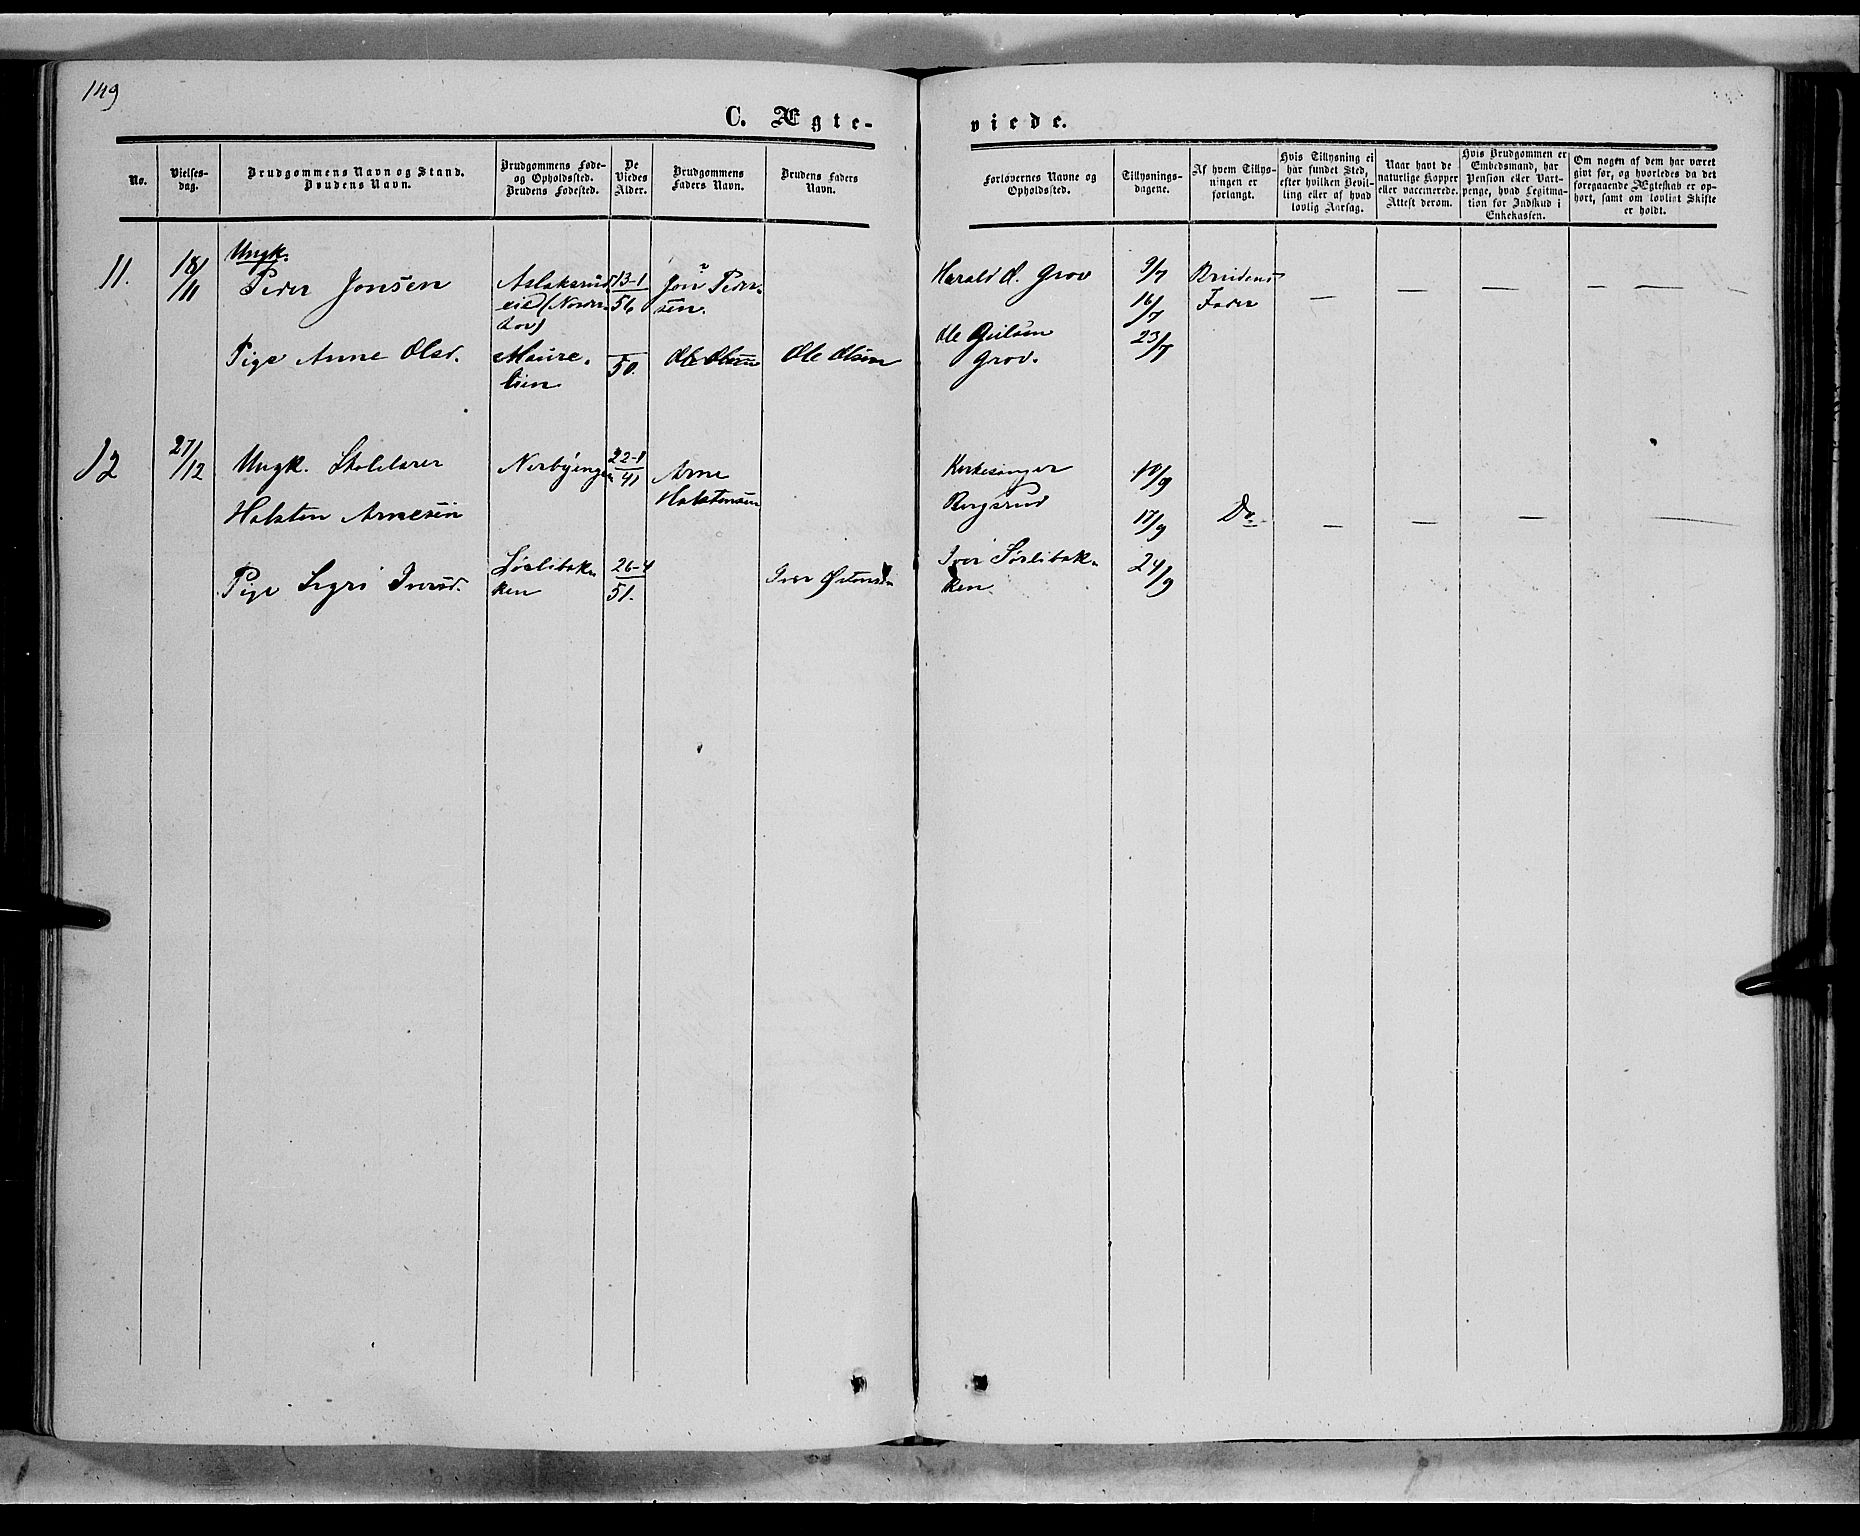 149
C. Ægte-
viede.
No.
Vielses-
dag.
Brudgommens Navn og Stand.
Brudens Navn.
Brudgommens Føde-
og Opholdssted.
Brudens Fødested.
De
Viedes
Alder.
Brudgommens
Faders Navn.
Brudens Faders
Navn.
Forlovernes Navne og
Opholdssted.
Tillysnings-
dagene.
Af hvem Tillys-
ningen er
forlangt.
Hvis Tillysning ei
har fundet Sted,
efter hvilken Bevil-
ling eller af hvad
lovlig Aarsag.
Naar havt de
naturlige Kopper
eller vaccinerede.
Attest derom.
Hvis Brudgommen er
Embedsmand, har
Pension eller Vart-
penge, hvad Legitima-
tion for Indskud i
Enkekassen.
Om nogen af dem har været
givt før, og hvorledes da det
foregaaende Ægteskab er op-
hørt, samt om lovligt Skifte
er holdt.
11.
18/11
Ungk.
Peder Jonsen
Aslaksrud
eie (Nordre
13-1
56
Jon Peder-
sen.
Harald O. Grov
9/7
Brudens
16/7
Fader
Pige Anne Olsd.
50.
Ole Olsen
Ole Olsen
Ole
Grov.
23/7
— — — — —
12
27/12
Ungk. Skolelærer
Nerbyengen
22-1
41
Arne
Holstensen
Kirkesanger
10/9
Holsten Arnesen
Bergsrud
17/9
Do
— — — —
Pige Sigri Iversd.
Sørlibak-
ken
26-4
51.
Iver Østensen
Iver Sørlibak-
ken.
24/9